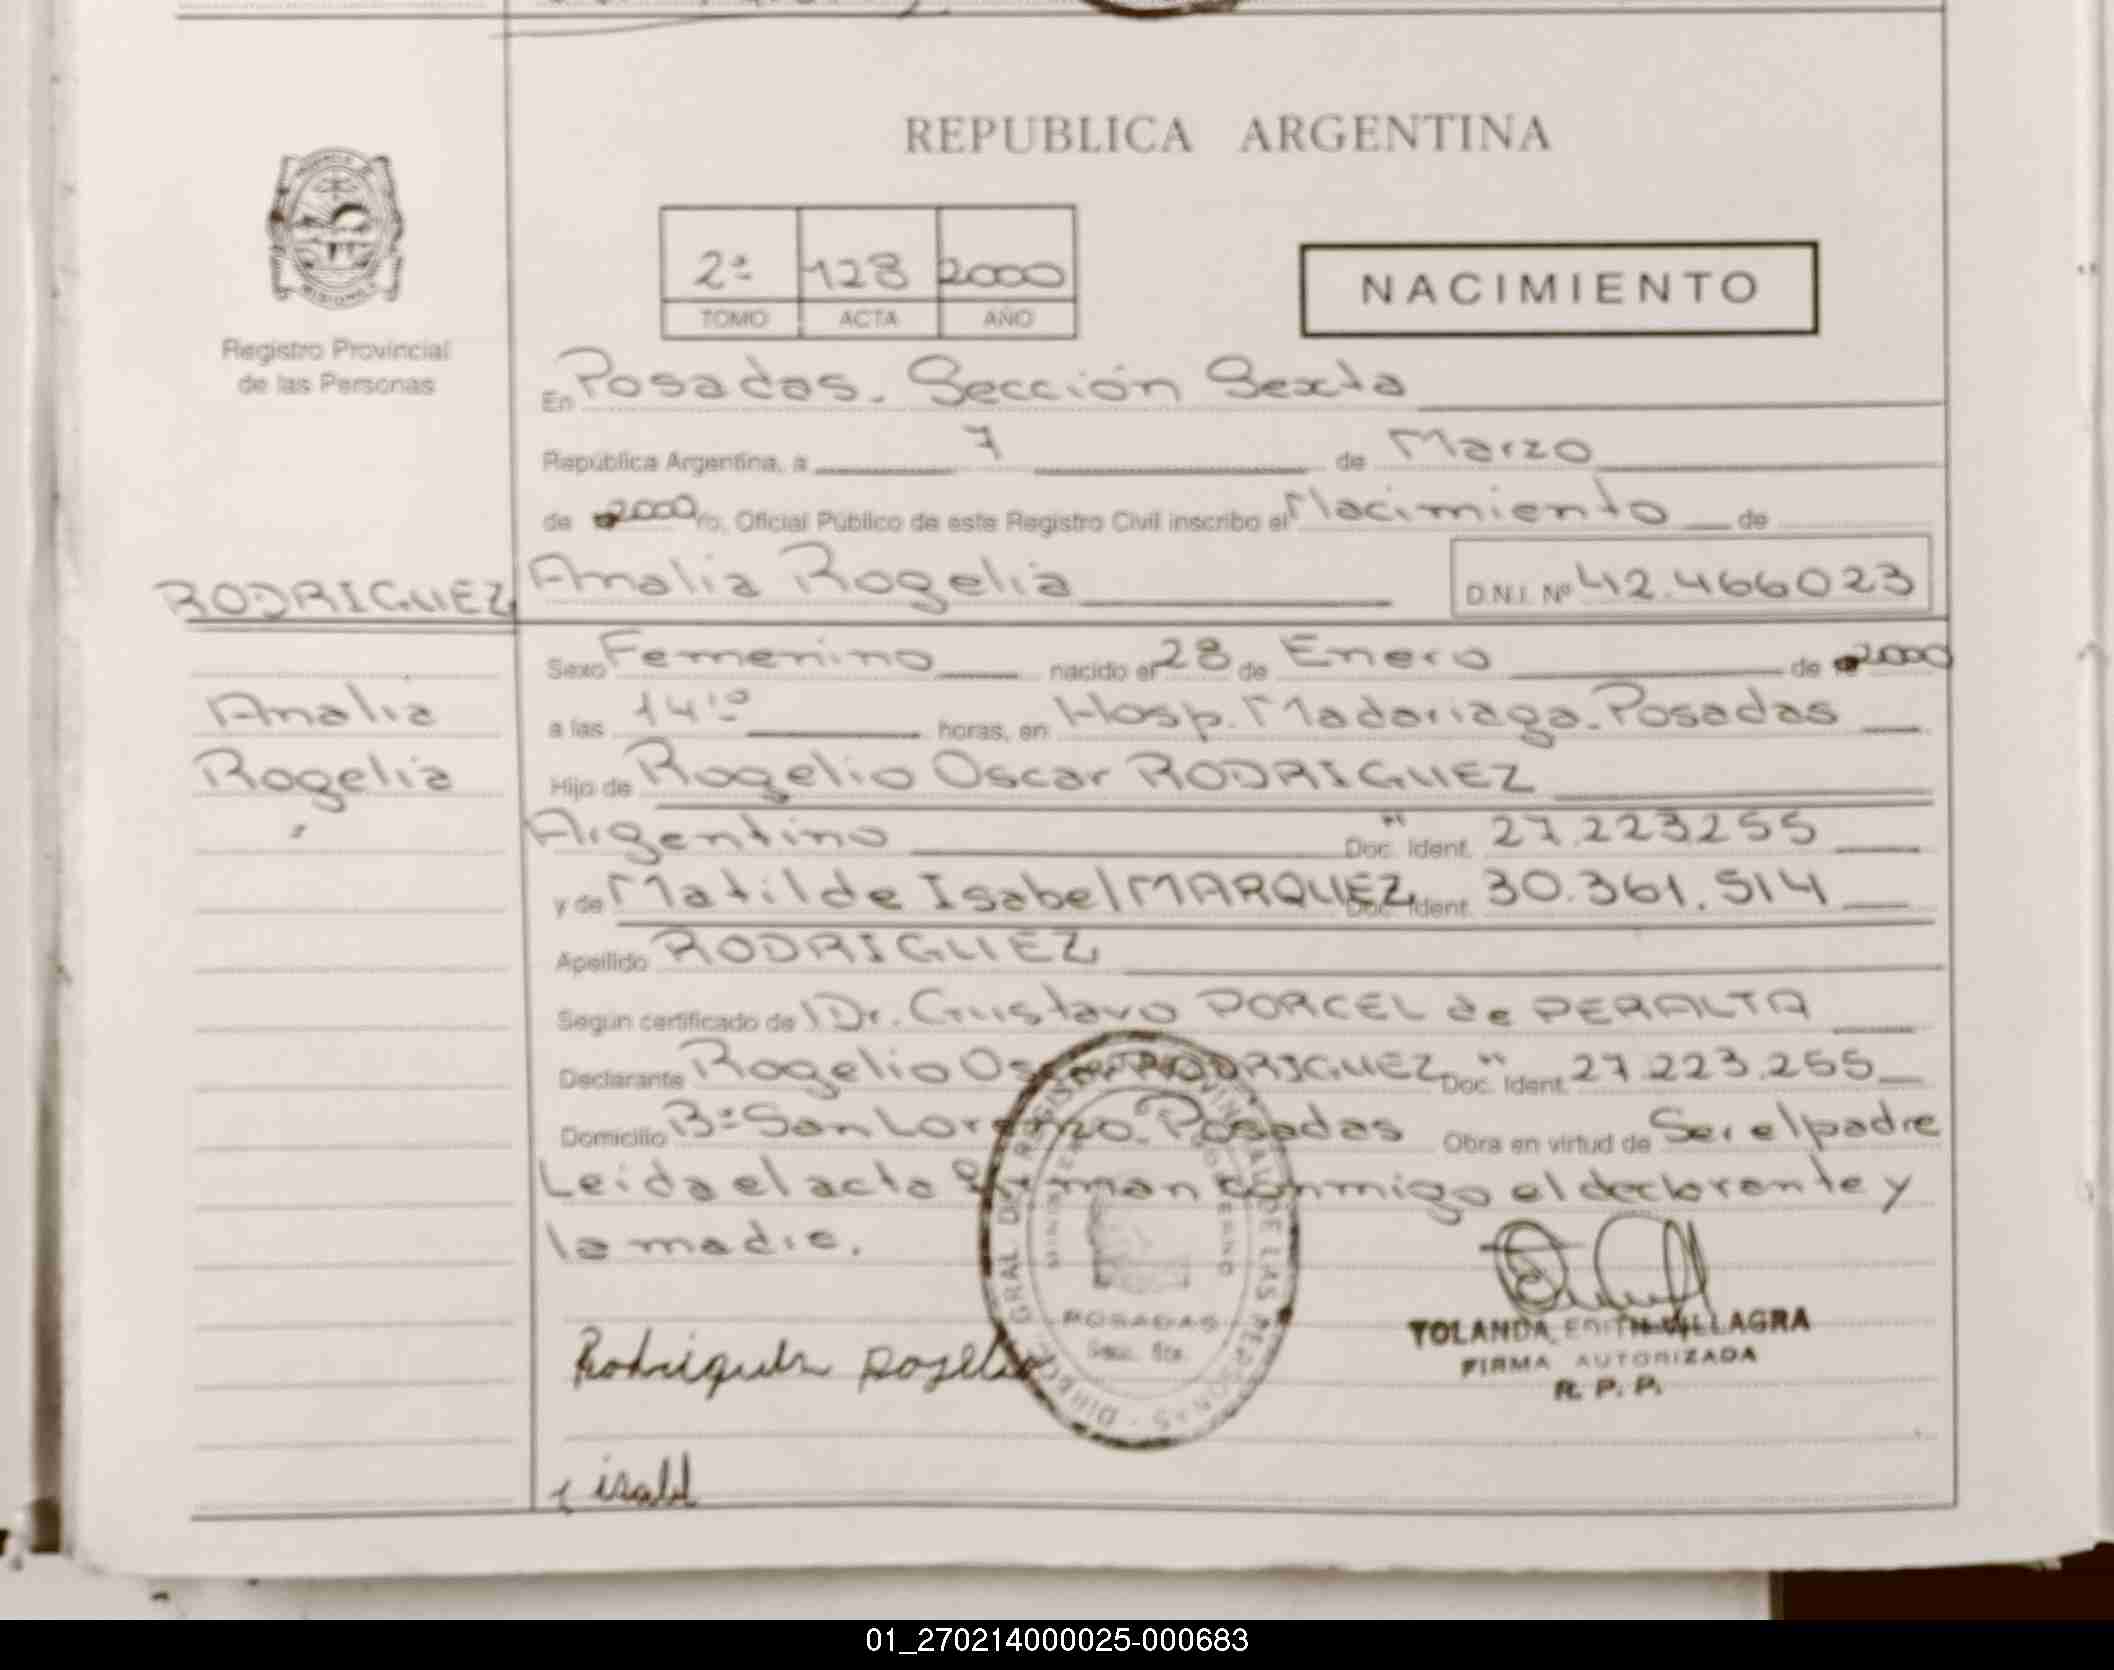 REPUBLICA ARGENTINA
2ª 128 2000
TOMO ACTA AÑO
NACIMIENTO
Registro Provincial
de las Personas
En Posadas. Sección Sexta
República Argentina, a 7 de Marzo
de 2000 yo, Oficial Público de este Registro Civil inscribo el Nacimiento de
RODRIGUEZ Analia Rogelia D.N.I. Nº 42.466023
Sexo Femenino nacido el 28 de Enero de 2000
Analia
a las 14 horas, en Hosp. Madariaga. Posadas
Rogelia
Hijo de Rogelio Oscar RODRIGUEZ
Argentino Doc. Ident. 27.223255
y de Matilde Isabel MARQUEZ Doc. Ident. 30.361.514
Apellido RODRIGUEZ
Según certificado de Dr. Gustavo PORCEL de PERALTA
Declarante Rogelio Oscar RODRIGUEZ Doc. Ident. 27.223.255
Domicilio Bº San Lorenzo. Posadas Obra en virtud de Ser el padre
Leida el acta firman conmigo el declarante y
la madre.
DIRECC. GRAL. DEL REGISTRO PROVINCIAL DE LAS PERSONAS
MINISTERIO DE GOBIERNO
POSADAS
Secc. 6ta.
YOLANDA EDITH VILLAGRA
FIRMA AUTORIZADA
R. P. P.
Rodriguez Rogelio
isabel
01_270214000025-000683